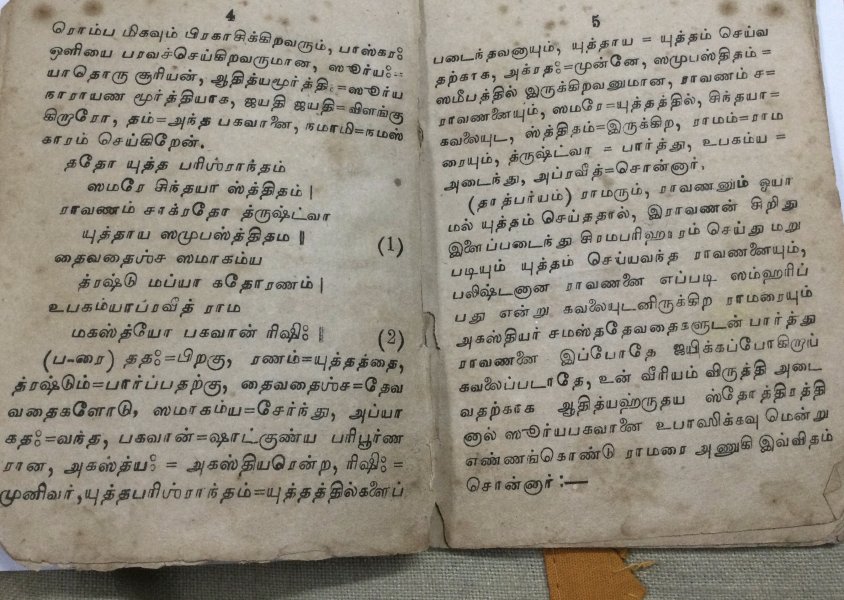 4
ரொம்ப மிகவும் பிரகாசிக்கிறவரும், பாஸ்கரஃ
ஒளியை பரவச்செய்கிறவருமான, ஸூர்யஃ=
யாதொரு சூரியன், ஆதித்யமூர்த்திஃ=ஸூர்ய
நாராயண மூர்த்தியாக, ஜயதி ஜயதி=விளங்கு
கிறாரோ, தம்=அந்த பகவானை, நமாமி=நமஸ்
காரம் செய்கிறேன்.
ததோ யுத்த பரிஶ்ராந்தம்
ஸமரே சிந்தயா ஸ்த்திதம் |
ராவணம் சாக்ரதோ த்ருஷ்ட்வா
யுத்தாய ஸமுபஸ்த்திதம ‖ (1)
தைவதைஶ்ச ஸமாகம்ய
த்ரஷ்டு மப்யா கதோரணம் |
உபகம்யாப்ரவீத் ராம
மகஸ்த்யோ பகவான் ரிஷிஃ ‖ (2)
(ப-ரை) ததஃ=பிறகு, ரணம்=யுத்தத்தை,
த்ரஷ்டும்=பார்ப்பதற்கு, தைவதைஶ்ச=தேவ
வதைகளோடு, ஸமாகம்ய=சேர்ந்து, அப்யா
கதஃ=வந்த, பகவான்=ஷாட்குண்ய பரிபூர்ண
ரான, அகஸ்த்யஃ = அகஸ்தியரென்ற, ரிஷிஃ =
முனிவர், யுத்தபரிஶ்ராந்தம்=யுத்தத்தில்களைப்
5
படைந்தவனாயும், யுத்தாய = யுத்தம் செய்வ
தற்காக, அக்ரதஃ=முன்னே, ஸமுபஸ்திதம் =
ஸமீபத்தில் இருக்கிறவனுமான, ராவணம் ச=
ராவணனையும், ஸமரே=யுத்தத்தில், சிந்தயா=
கவலையுட, ஸ்த்திதம்=இருக்கிற, ராமம்=ராம
ரையும், த்ருஷ்ட்வா = பார்த்து, உபகம்ய =
அடைந்து, அப்ரவீத்=சொன்னார்.
(தாத்பர்யம்) ராமரும், ராவணனும் ஓயா
மல் யுத்தம் செய்ததால், இராவணன் சிறிது
இளைப்படைந்து சிரமபரிஹாரம் செய்து மறு
படியும் யுத்தம் செய்யவந்த ராவணனையும்,
பலிஷ்டனான ராவணனை எப்படி ஸம்ஹரிப்
பது என்று கவலையுடனிருக்கிற ராமரையும்
அகஸ்தியர் சமஸ்ததேவதைகளுடன் பார்த்து
ராவணனை இப்போதே ஜயிக்கப்போகிறாய்
கவலைப்படாதே, உன் வீரியம் விருத்தி அடை
வதற்காக ஆதித்யஹ்ருதய ஸ்தோத்திரத்தி
னால் ஸூர்யபகவானை உபாஸிக்கவு மென்று
எண்ணங்கொண்டு ராமரை அணுகி இவ்விதம்
சொன்னார் :—